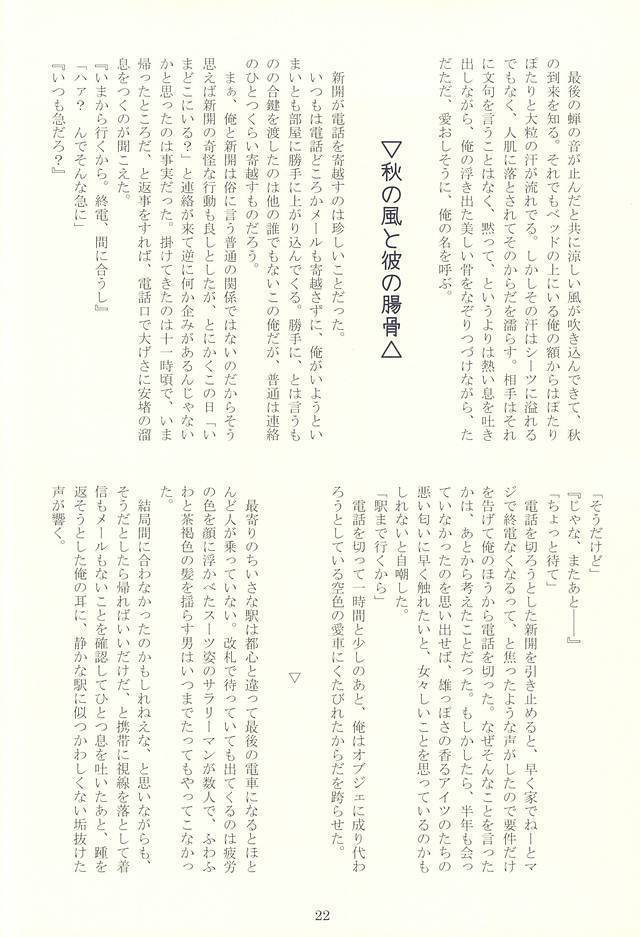 最後の蝉の音が止んだと共に涼しい風が吹き込んできて、秋
の到来を知る。それでもベッドの上にいる俺の額からはぽたり
ぽたりと大粒の汗が流れでる。しかしその汗はシーツに溢れる
でもなく、人肌に落とされてそのからだを濡らす。相手はそれ
に文句を言うことはなく、黙って、というよりは熱い息を吐き
出しながら、俺の浮き出た美しい骨をなぞりつづけながら、た
だただ、愛おしそうに、俺の名を呼ぶ。
▽秋の風と彼の腸骨△
新開が電話を寄越すのは珍しいことだった。
いつもは電話どころかメールも寄越さずに、俺がいようとい
まいとも部屋に勝手に上がり込んでくる。勝手に、とは言うも
のの合鍵を渡したのは他の誰でもないこの俺だが、普通は連絡
のひとつくらい寄越すものだろう。
まぁ、俺と新開は俗に言う普通の関係ではないのだからそう
思えば新開の奇怪な行動も良しとしたが、とにかくこの日「い
まどこにいる？」と連絡が来て逆に何か企みがあるんじゃない
かと思ったのは事実だった。掛けてきたのは十一時頃で、いま
帰ったところだ、と返事をすれば、電話口で大げさに安堵の溜
息をつくのが聞こえた。
『いまから行くから。終電、間に合うし』
「ハァ？　んでそんな急に」
『いつも急だろ？』
「そうだけど」
『じゃな、またあと――』
「ちょっと待て」
電話を切ろうとした新開を引き止めると、早く家でねーとマ
ジで終電なくなるって、と焦ったような声がしたので要件だけ
を告げて俺のほうから電話を切った。なぜそんなことを言った
かは、あとから考えたことだった。もしかしたら、半年も会っ
ていなかったのを思い出せば、雄っぽさの香るアイツのたちの
悪い匂いに早く触れたいと、女々しいことを思っているのかも
しれないと自嘲した。
「駅まで行くから」
電話を切って一時間と少しのあと、俺はオブジェに成り代わ
ろうとしている空色の愛車にくたびれたからだを跨らせた。
▽
最寄りのちいさな駅は都心と違って最後の電車になるとほと
んど人が乗っていない。改札で待っていても出てくるのは疲労
の色を顔に浮かべたスーツ姿のサラリーマンが数人で、ふわふ
わと茶褐色の髪を揺らす男はいつまでたってもやってこなかっ
た。
結局間に合わなかったのかもしれねえな、と思いながらも、
そうだとしたら帰ればいいだけだ、と携帯に視線を落として着
信もメールもないことを確認してひとつ息を吐いたあと、踵を
返そうとした俺の耳に、静かな駅に似つかわしくない垢抜けた
声が響く。
22